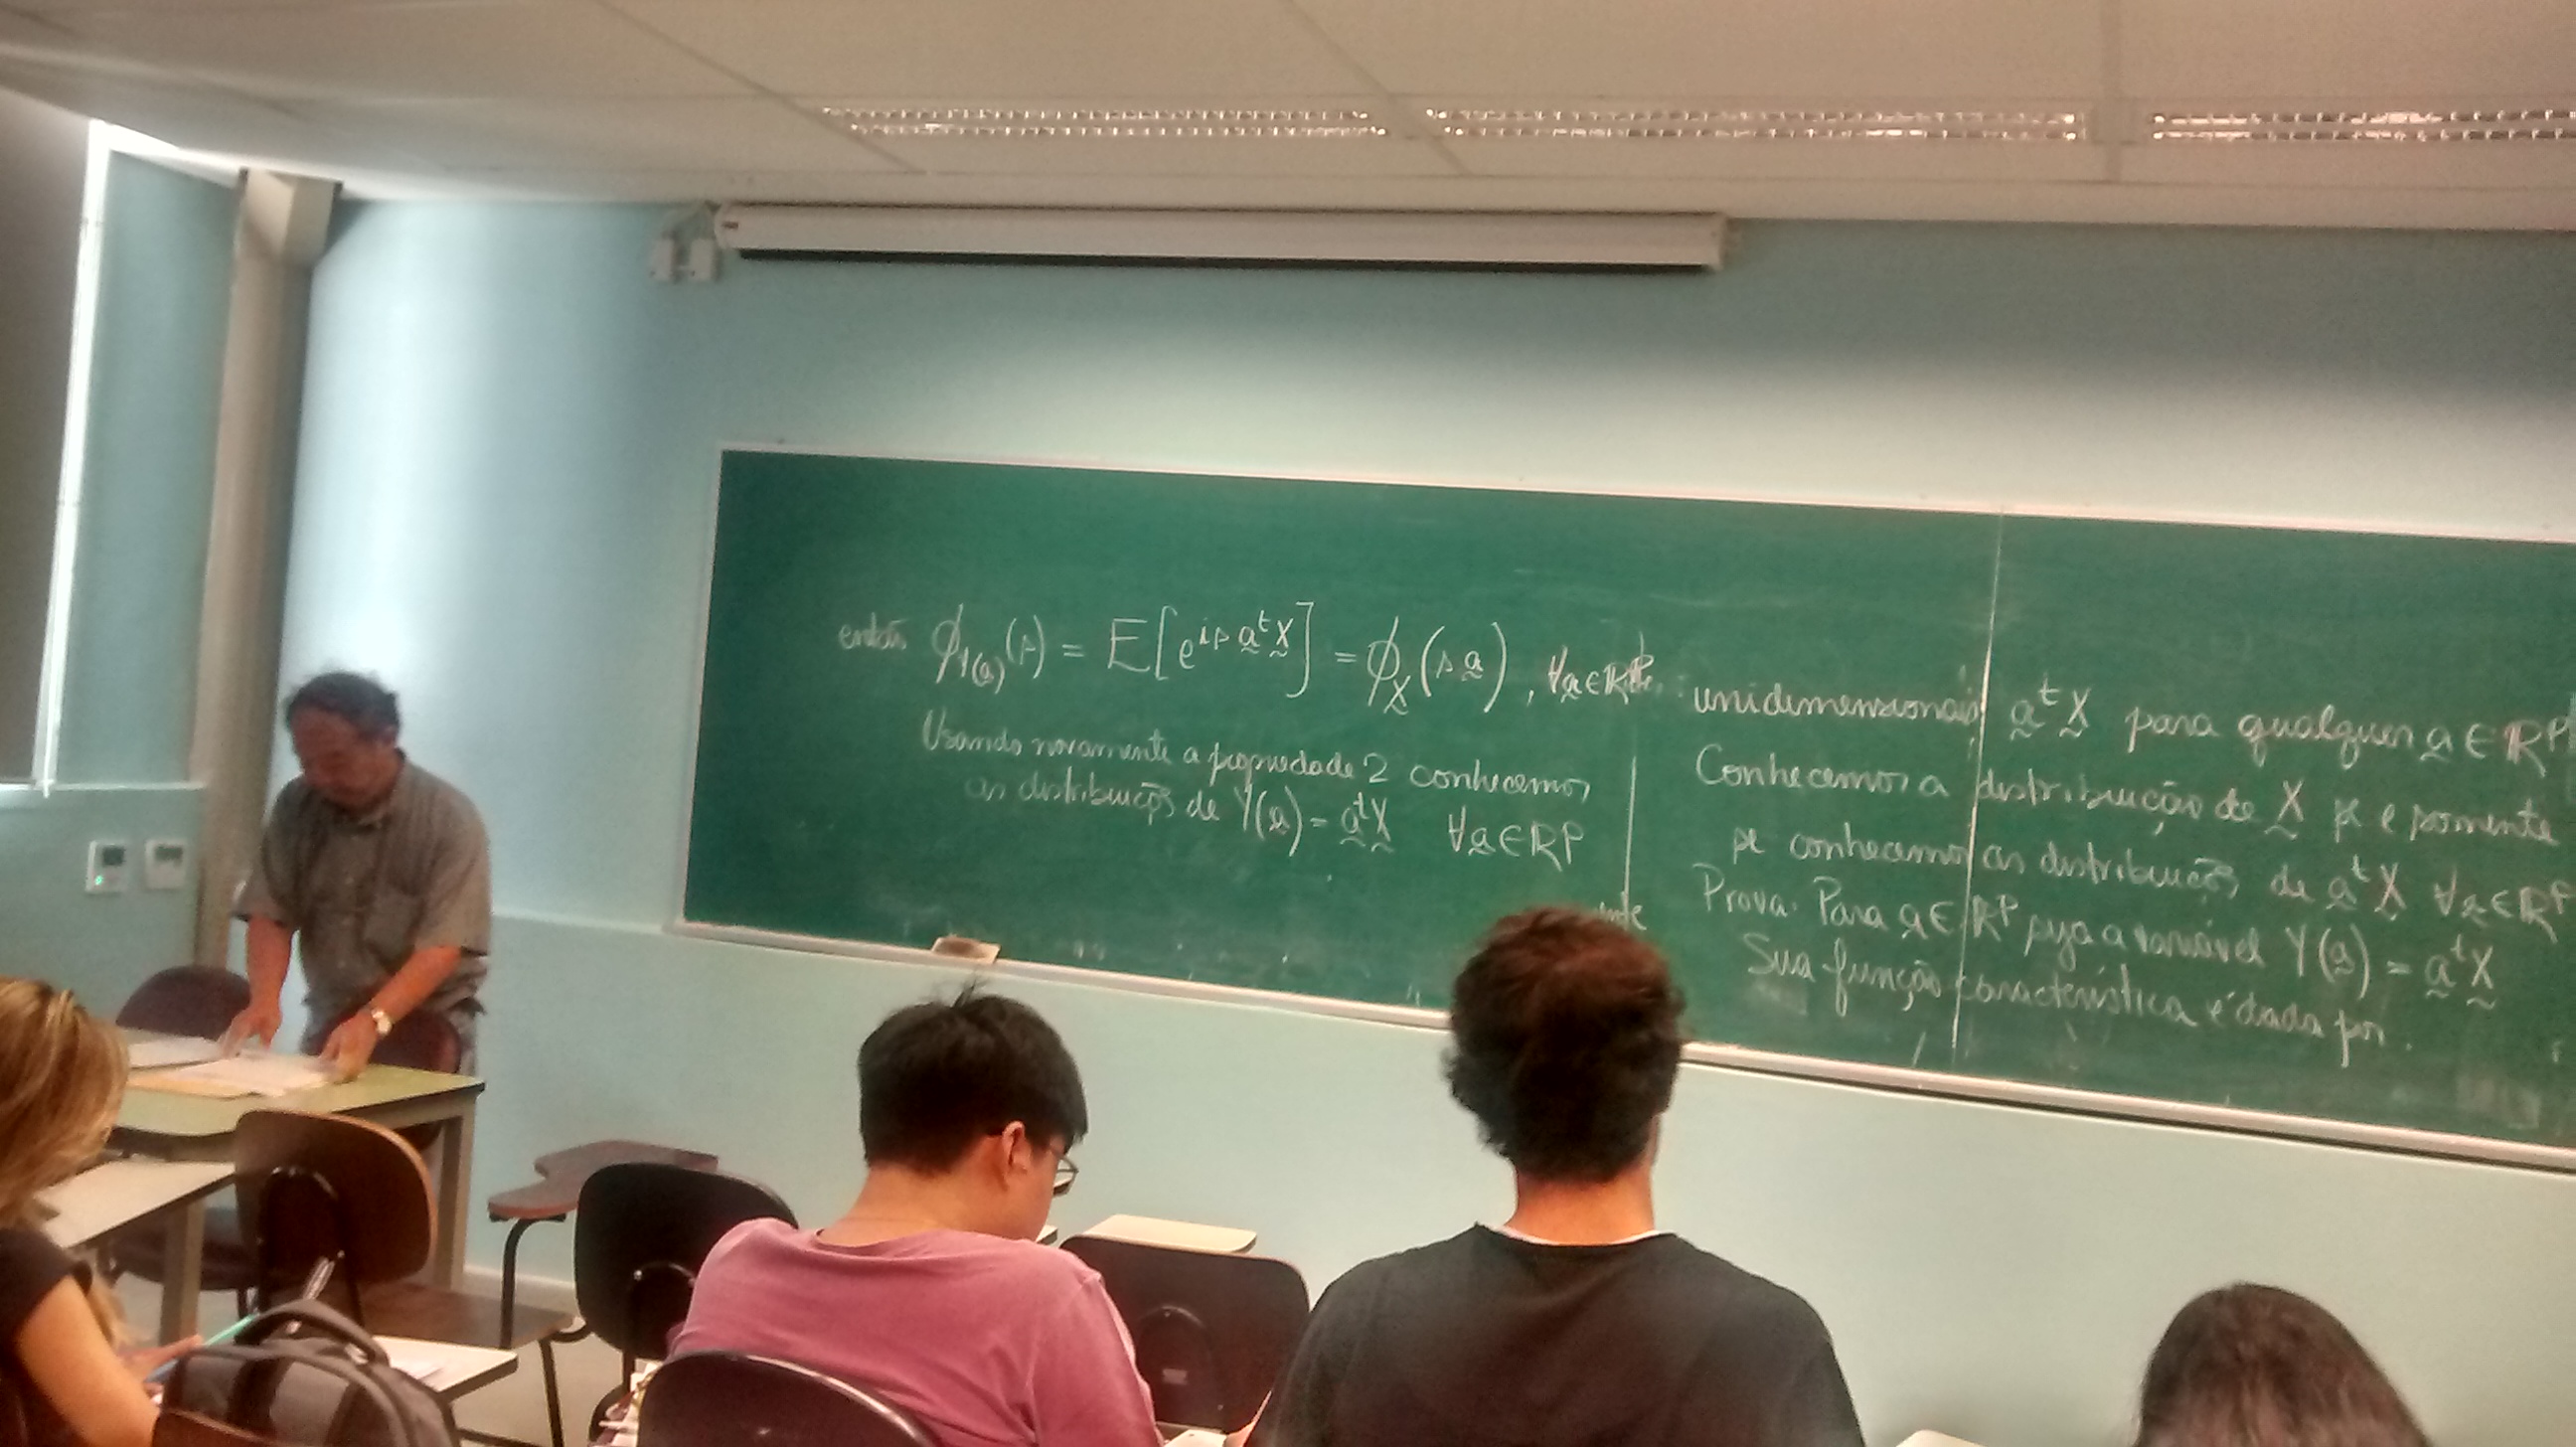 então ϕ_Y(a)(s) = E[e^{is a^t X}] = ϕ_X(s a), ∀ a ∈ ℝ^p
Usando novamente a propriedade 2 conhecemos
as distribuições de Y(a) = a^t X ∀ a ∈ ℝ^p
unidimensionais a^t X para qualquer a ∈ ℝ^p
Conhecemos a distribuição de X se e somente
se conhecemos as distribuições de a^t X ∀ a ∈ ℝ^p
Prova. Para a ∈ ℝ^p seja a variável Y(a) = a^t X
Sua função característica é dada por